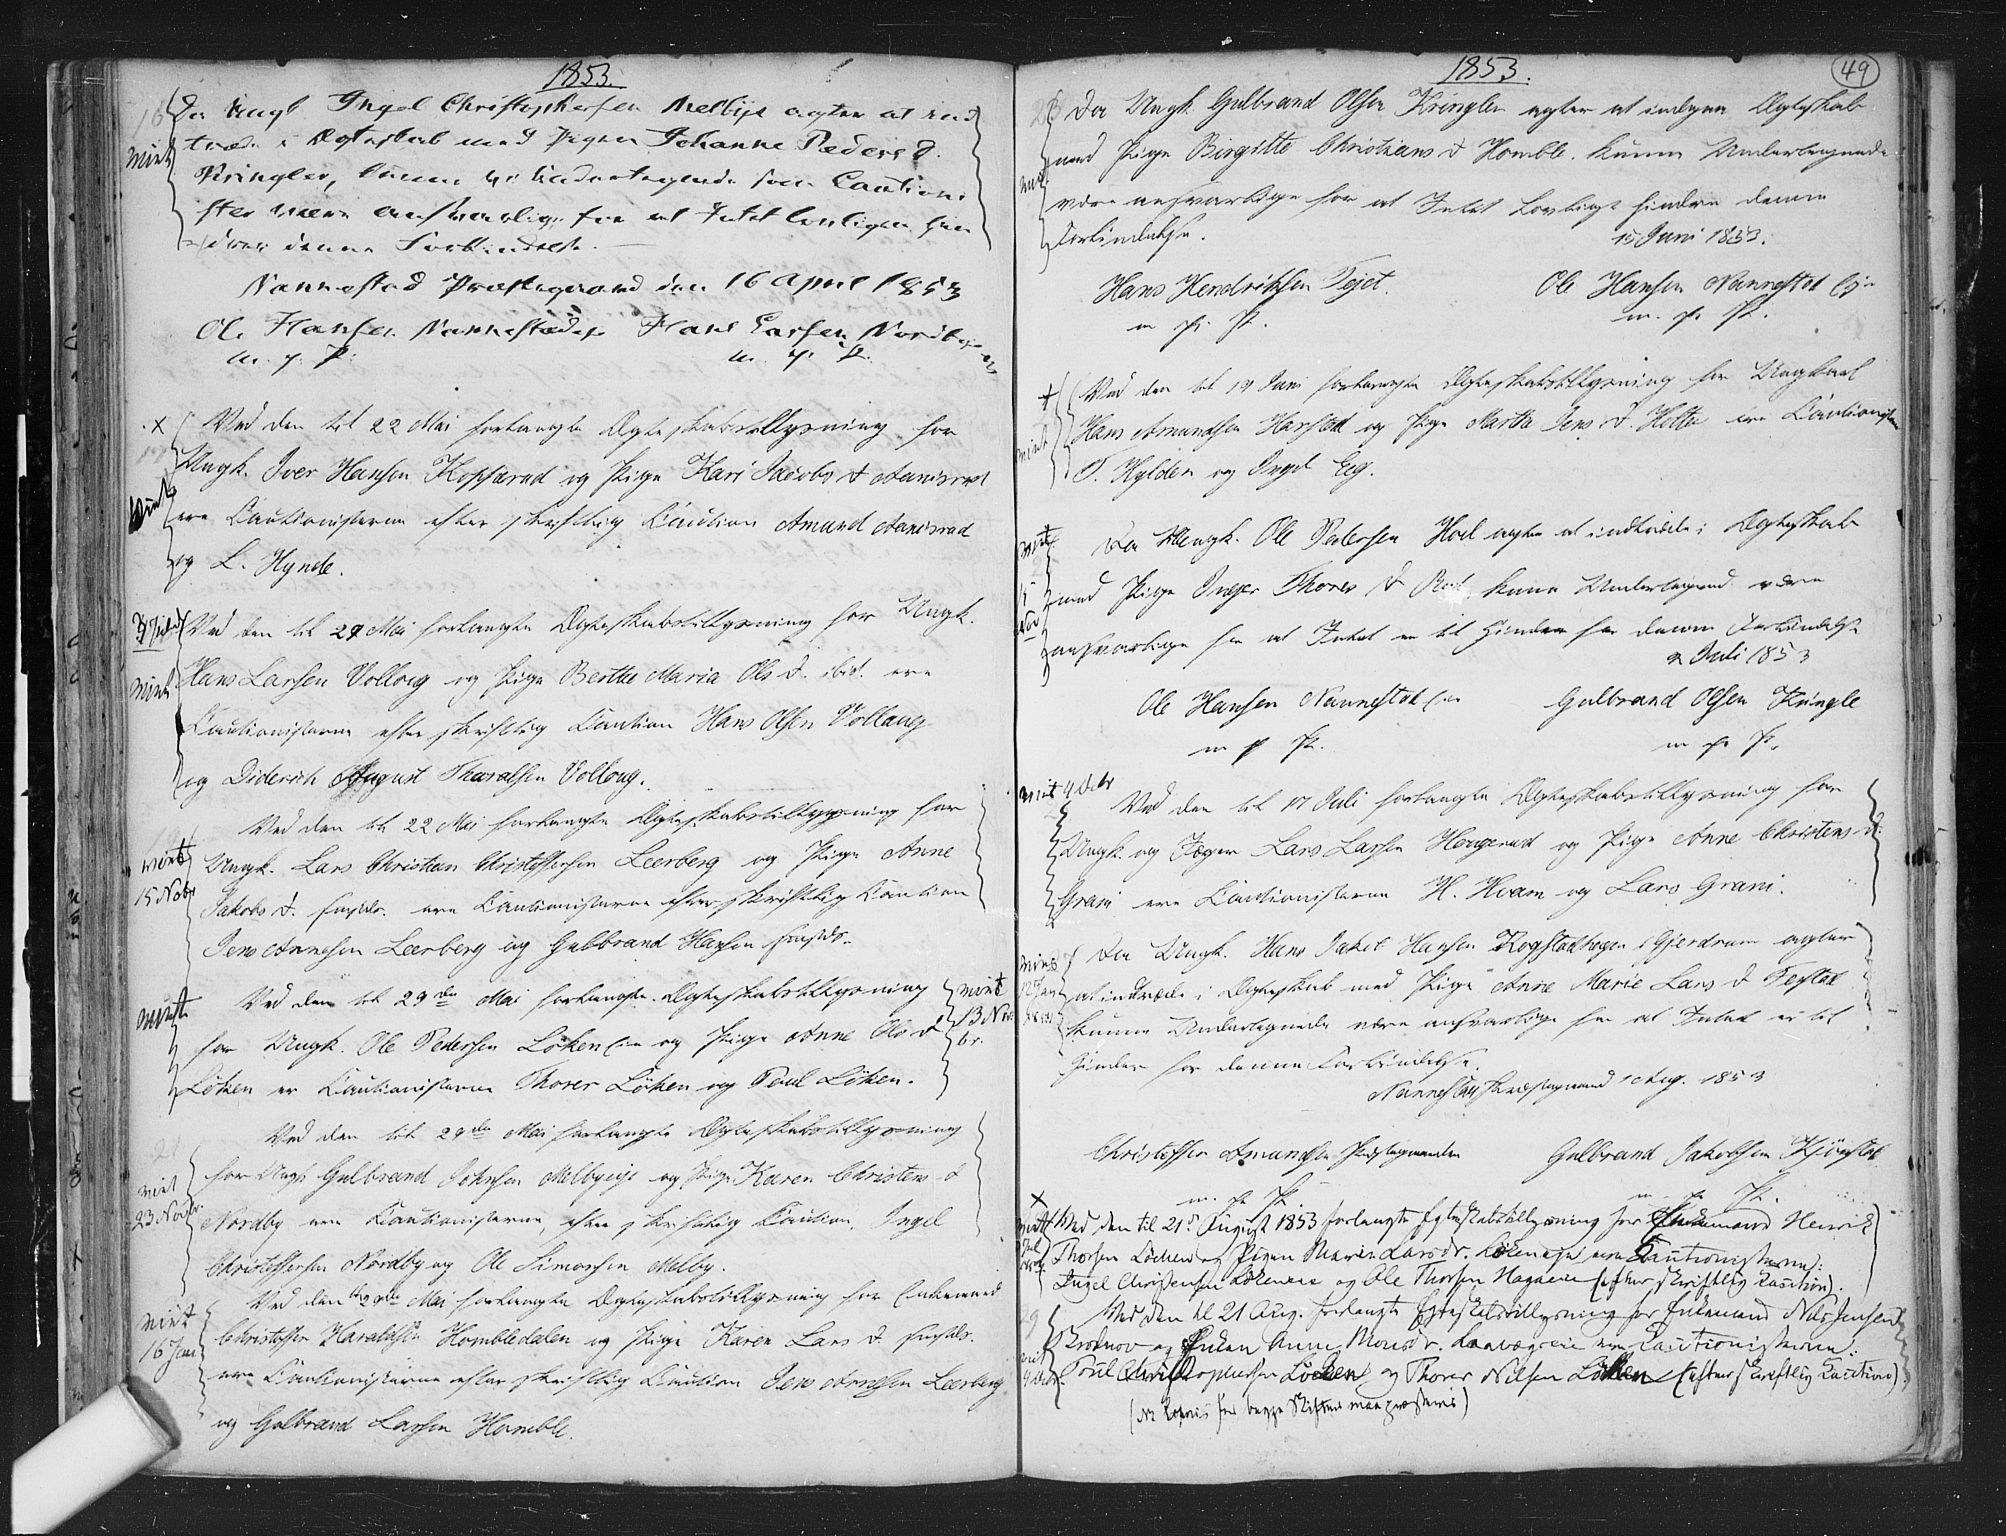 1853.
16
Da Ungk. Ingel Christophersen Melbye agter at ind
træde i Ægteskab med Pigen Johanne Peders D.
Kringler, kunne vi Undertegnede som Caution-
ister være ansvarlige for at Intet lovligen hin
drer denne Forbindelse.
Viet
Nannestad Præstegaard den 16 April 1853
Ole Hansen Nannestadeje Hans Larsen Nordby
m. p. P. m. p. P.
Ved den til 22 Mai forlangte Ægteskabstillysning for
Ungk. Iver Hansen Kopperud og Pige Kari Jacobs D Aanisrud
ere Cautionisterne efter skriftlig Caution Amund Aanisrud
og L. Hynde.
Viet
Ved den til 29 Mai forlangte Ægteskabstillysning for Ungk.
Hans Larsen Vollaug og Pige Berthe Maria Ols D. ibid. ere
Cautionisterne efter skriftlig Caution Hans Olsen Vollaug
og Diderich August Thoralsen Vollaug.
Viet
Ved den til 22 Mai forlangte Ægteskabstillysning for
Ungk. Lars Christian Christophersen Leerberg og Pige Anne
Jakobs D. ere Cautionisterne efter skriftlig Caution
Jens Arnesen Leerberg og Gulbrand Hansen
Viet
15 Nobr
Ved den til 29de Mai forlangte Ægteskabstillysning
for Ungk. Ole Pedersen Löken og Pige Anne Ols D
Löken er Cautionisterne Thorer Löken og Poul Löken.
Viet
13 Nov
br.
Ved den til 29de Mai forlangte Ægteskabstillysning
for Ungk Gulbrand Johnsen Melbyeje og Pige Karen Christens D
Nordby ere Cautionisterne, efter skriftlig Caution, Ingel
Christophersen Nordby og Ole Simonsen Melby.
Viet
23 Novbr.
Ved den til 29de Mai forlangte Ægteskabstillysning for Enkemand
Christopher Haraldsen Hombledalen og Pige Karen Lars D
ere Cautionisterne efter skriftlig Caution Jens Arnesen Leerberg
og Gulbrand Larsen Homble.
Viet
16 Juni
1853.
49
Da Ungk. Gulbrand Olsen Kringler agter at indgaa Ægteskab
med Pige Birgitte Christians D Homble, kunne Undertegnede
være ansvarlige for at Intet Lovligt hindrer denne
Forbindelse.
15 Juni 1853.
Hans Hendriksen Tejet Ole Hansen Nannestad
m. p. P. m. p. P.
Ved den til 19 Juni forlangte Ægteskabstillysning for Ungkarl
Hans Amundsen Harstad og Pige Martha Jens D. Holte ere Cautionister
T. Hylden og Ingel Eeg.
Viet
Da Ungk. Ole Pedersen Hoel agter at indtræde i Ægteskab
med Pige Inger Thorers D kunne Undertegnede være
ansvarlige for at Intet er til Hinder for denne Forbindelse
2 Juli 1853
Ole Hansen Nannestad Gulbrand Olsen Kringle
m p P. m p P.
Viet
Ved den til 17 Juli forlangte Ægteskabstillysning for
Ungk. og Jæger Lars Larsen Haugerud og Pige Anne Christens D.
Grani ere Cautionisterne H. Hvam og Lars Grani.
Viet
Da Ungk. Hans Jakob Hansen Rogstadhagen i Gjerdrum agter
at indtræde i Ægteskab med Pige Anne Marie Lars D Testad
kunne Undertegnede være ansvarlige for at Intet er til
Hinder for denne Forbindelse.
Nannestad Præstegaard Aug. 1853
Christopher Amundsen Præstegaarden Gulbrand Jakobsen Kjönstad
m. p. P. m. p. P.
Viet
Ved den til 21 August 1853 forlangte Egteskabstillysning for Enkemand Henrik
Thorsen Löken og Pigen Maren Larsdr. Lökeneje ere Cautionisterne:
Ingel Christensen Lökeneie og Ole Thorsen Hagaeie (efter skriftlig Caution).
Ved den til 21 Aug. forlangte Egteskabstillysning for Enkemand Nils Jensen
og Enken Anne ere Cautionisterne:
Poul Christophersen Löcken og Thorer Nilsen Löken (efter skriftlig Caution)